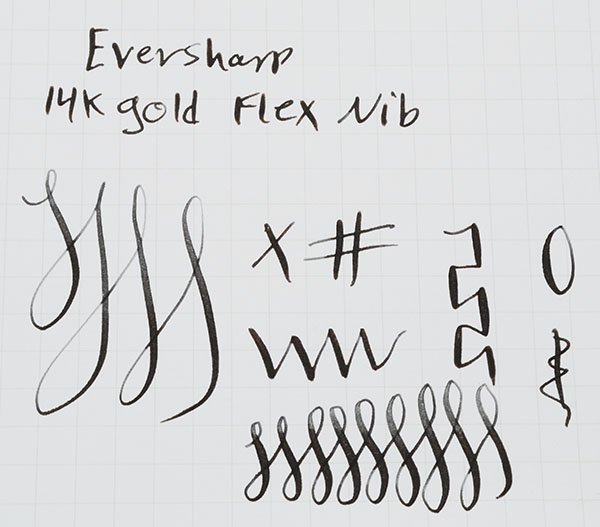 Eversharp
14K gold Flex Nib
X #